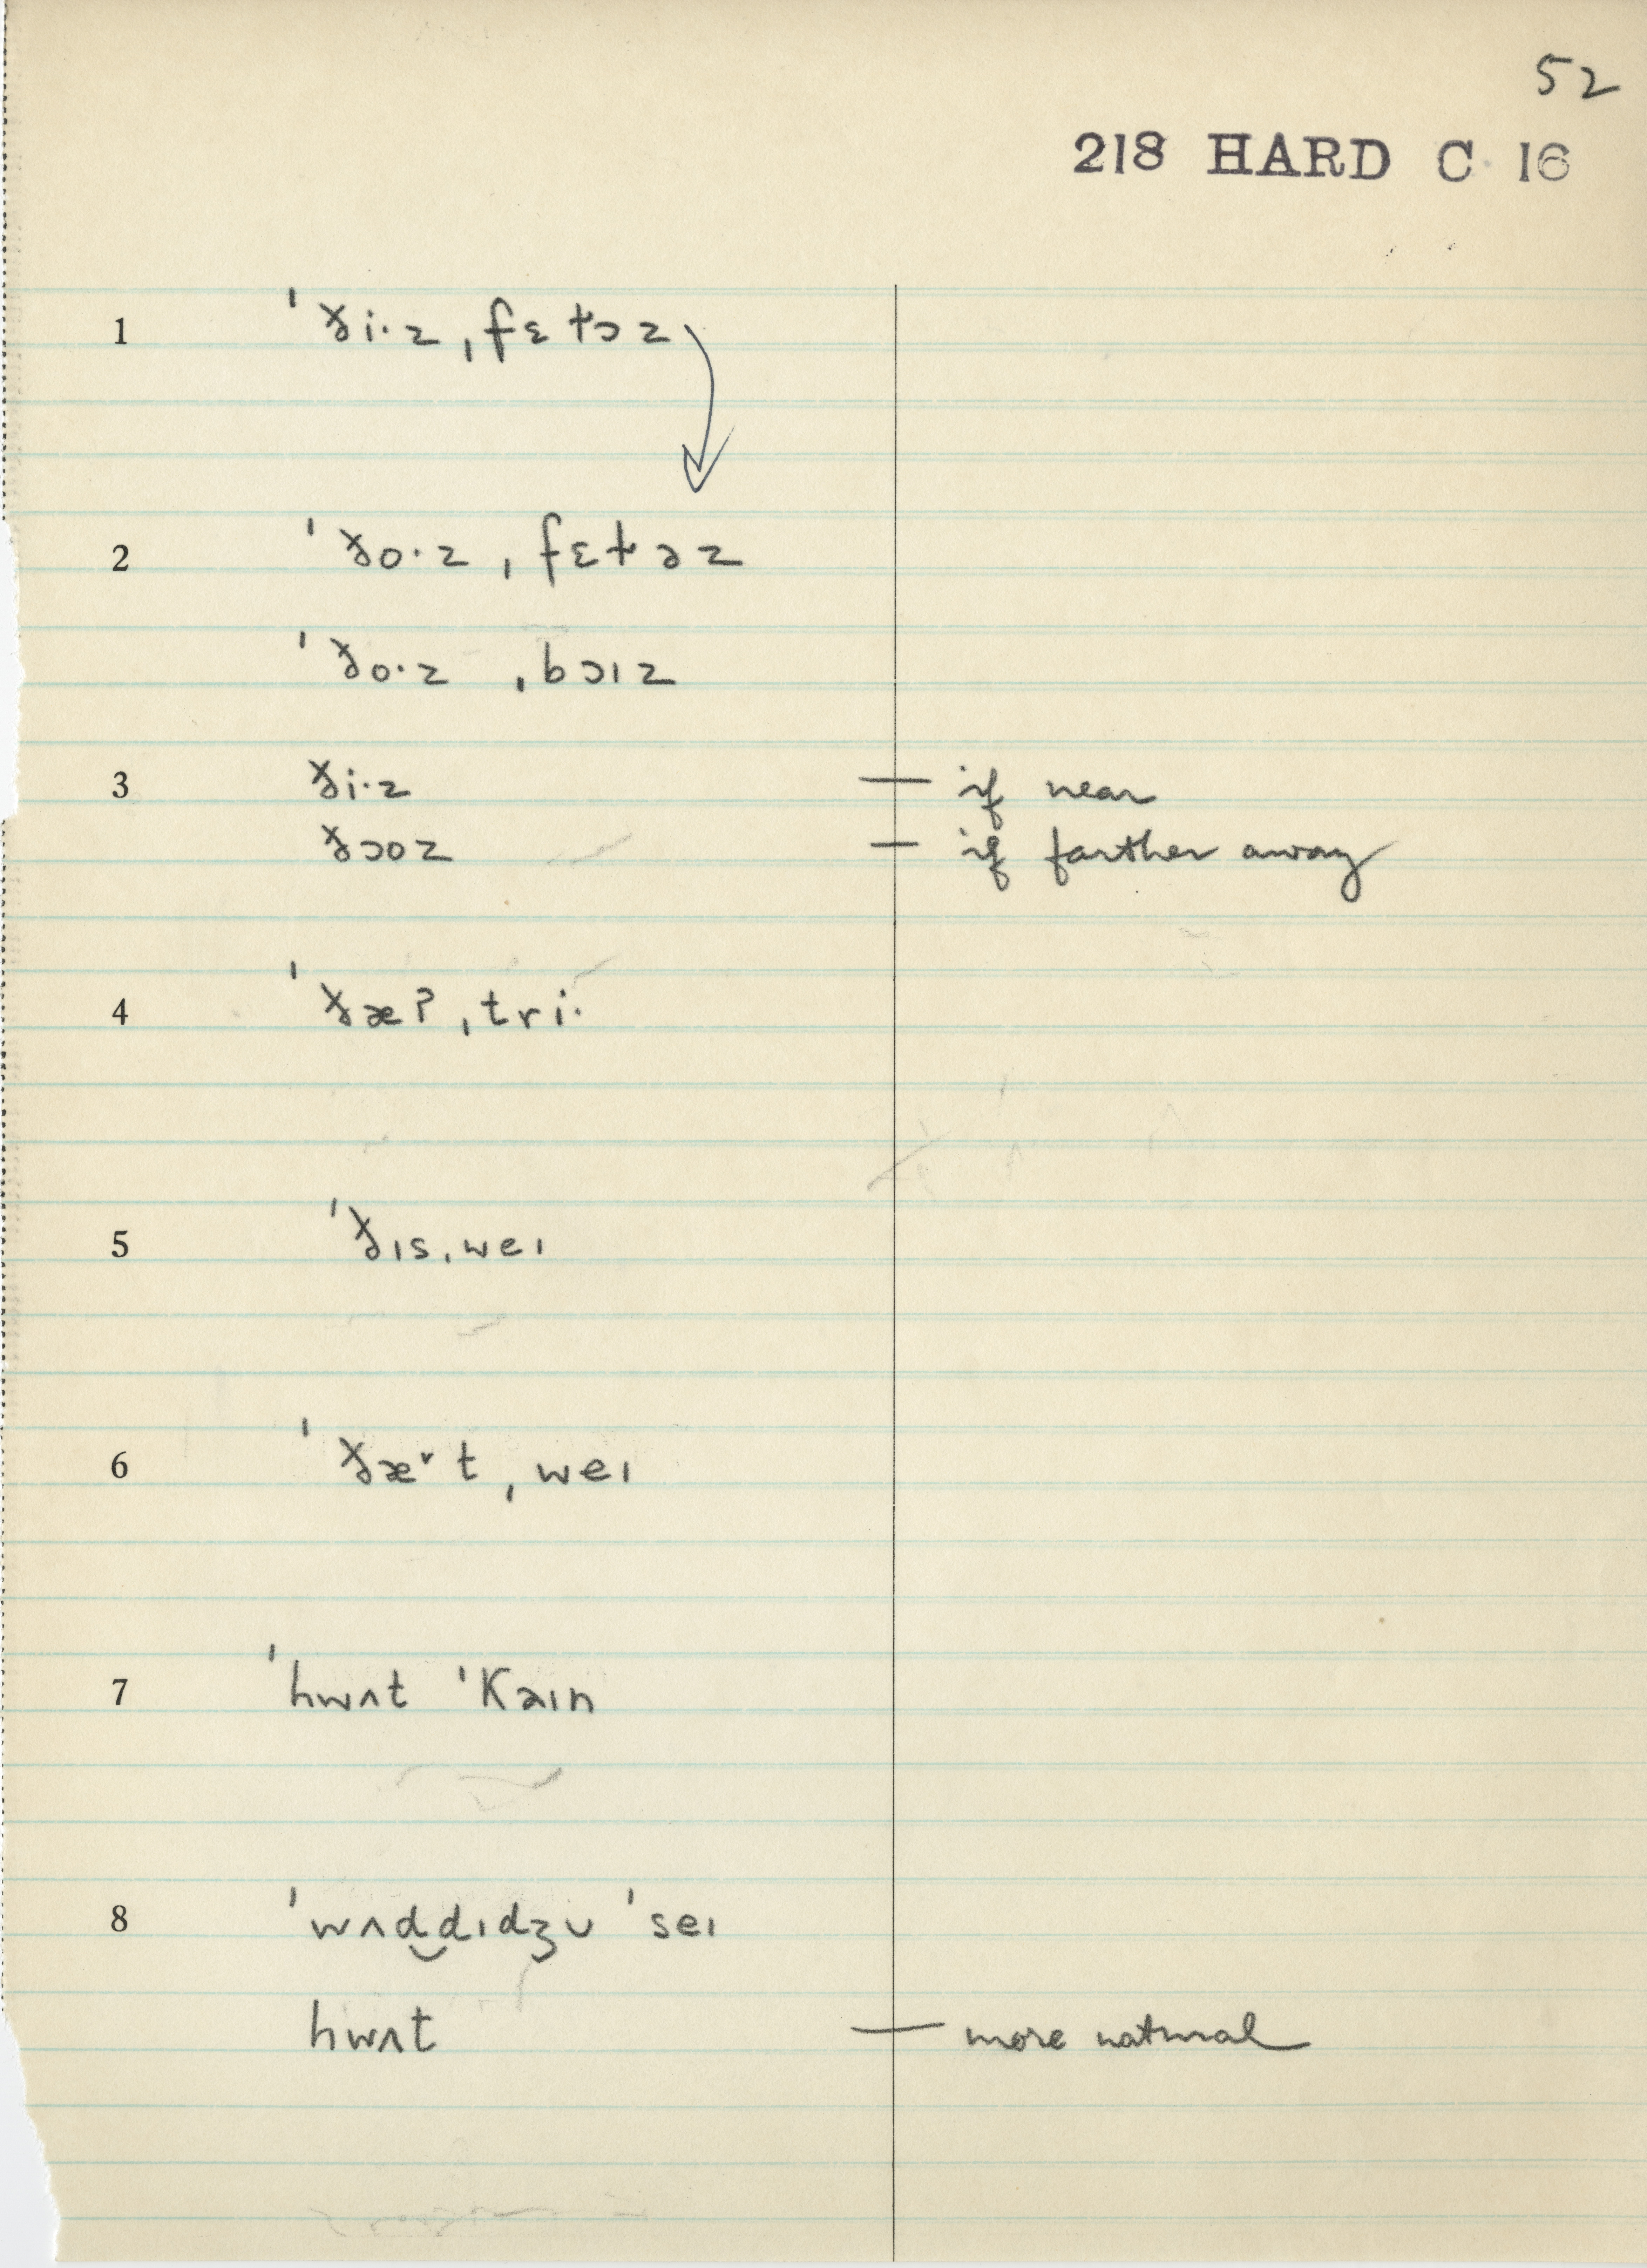 52
218 HARD C 16
1 ˈð̵i·z ˌfɛɫɔz
2 ˈð̵o·z ˌfɛɫəz
ˈð̵o·z ˌbɔɪz
3 ð̵i·z — if near
ð̵ɔoz — if farther away
4 ˈð̵æʔ ˌtri·
5 ˈð̵ɪs ˌweɪ
6 ˈð̵æ˅t ˌweɪ
7 ˈhwʌt ˈKaɪn
8 ˈwʌd‿dɪdʒʊ ˈseɪ
hwʌt — more natural